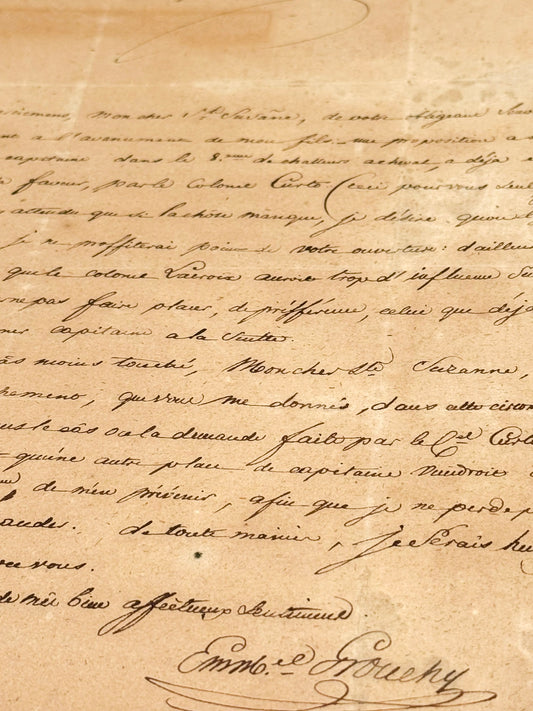 mon cher Ste Suzanne, de votre obligeant
a l'avancement de mon fils. une proposition a
capitaine dans le 8.eme de chasseurs acheval, a déja
faveur, par le Colonel Curto (Ceci pour vous seul
attendu que si la chose manque, je désire qu'on
je ne profiterai point de votre ouverture: d'ailleurs
que le colonel Lacroix auroit trop d'influence
pas faire placer, de préfférence, celui que déjà
capitaine a la Suitte.
moins touché, Mon cher Ste Suzanne,
que vous me donnés, dans cette
le cas ou la demande faite par le Cel Curto
qu'une autre place de capitaine viendroit
de m'en prévenir, afin que je ne perde
de toute maniere, je serais
vous.
de mes bien affectueux Sentimens.
Emm.el Grouchy